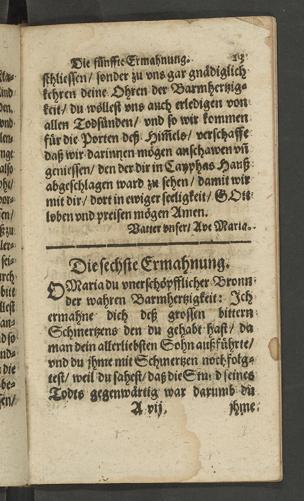 Die fünffte Ermahnung. 13
schliessen/ sonder zu vns gar gnädiglich
kehren deine Ohren der Barmhertzig-
keit/ du wöllest vns auch erledigen von
allen Todsünden/ vnd so wir kommen
für die Porten deß Himels/ verschaffe
daß wir darinnen mögen anschawen vñ
geniessen/ den der dir in Cayphas Hauß
abgeschlagen ward zu sehen/ damit wir
mit dir/ dort in ewiger seeligkeit/ GOtt
loben vnd preisen mögen Amen.
Vatter vnser/ Ave Maria.
Die sechste Ermahnung.
O Maria du vnerschöpfflicher Bronn
der wahren Barmhertzigkeit: Ich
ermahne dich deß grossen bittern
Schmertzens den du gehabt hast/ da
man dein allerliebsten Sohn außführte/
vnd du jhme mit Schmertzen nochfolg-
test/ weil du sahest/ daß die Stund seines
Todts gegenwärtig war darumb du
A vij. jhme